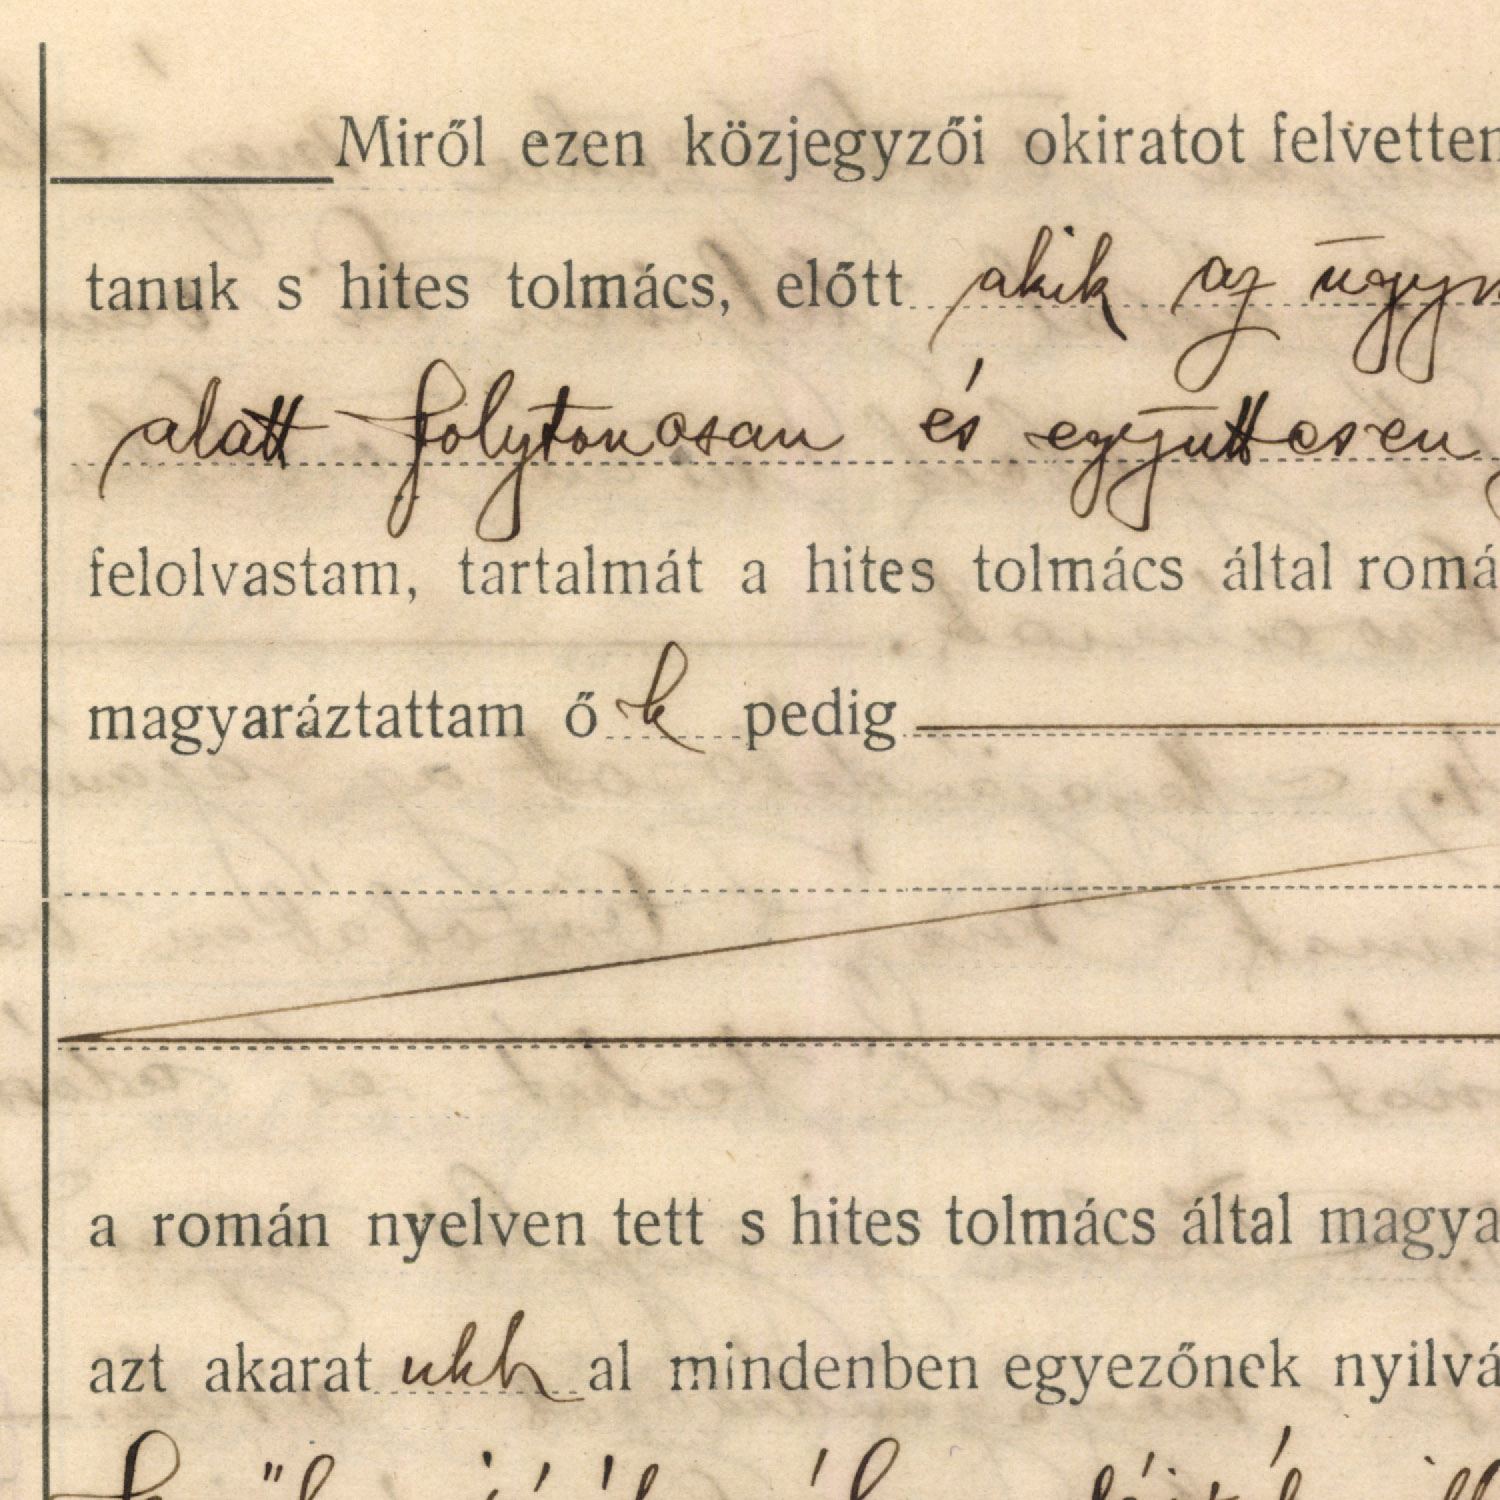 Miről ezen közjegyzői okiratot felvettem
tanuk s hites tolmács, előtt akik az ügym
alatt folytonosan és együttesen
felolvastam, tartalmát a hites tolmács által romá
magyaráztattam ő k pedig
a román nyelven tett s hites tolmács által magya
azt akarat ukk al mindenben egyezőnek nyilvá